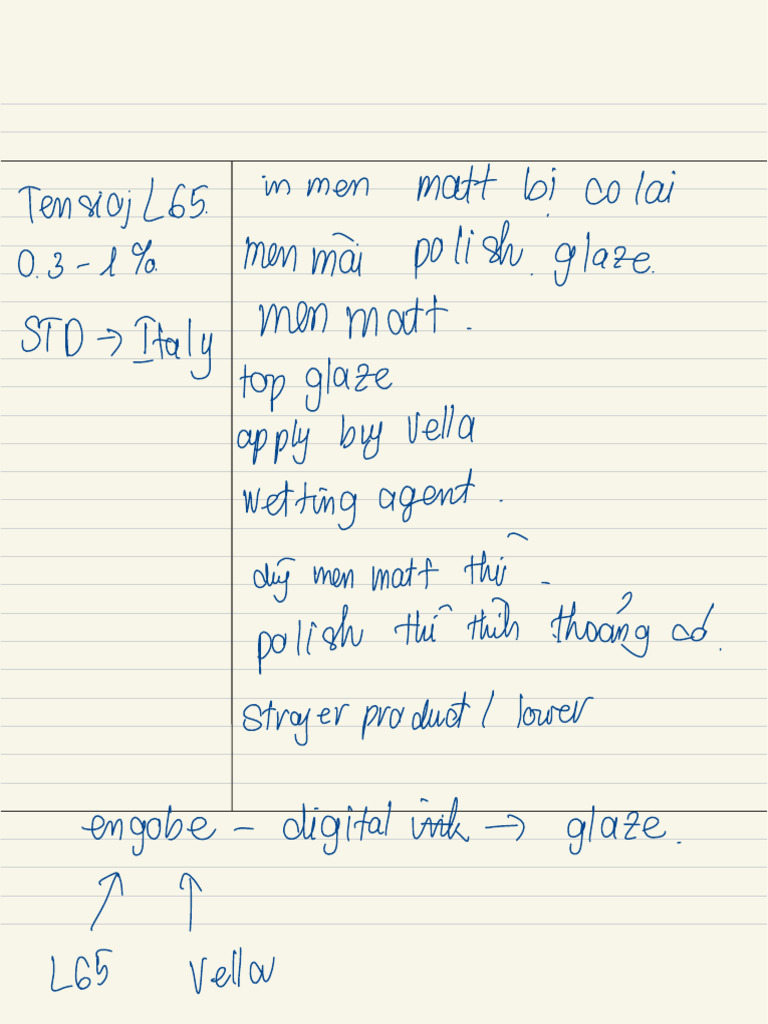 Tensioj L65.
0.3 - 1 %.
STD → Italy
in men matt bị co lai
men mài polish. glaze.
men matt.
top glaze
apply by Vella
wetting agent.
men matt thì -
polish thì thỉnh thoảng có.
product / lower
engobe - digital ink → glaze.
L65 Vella